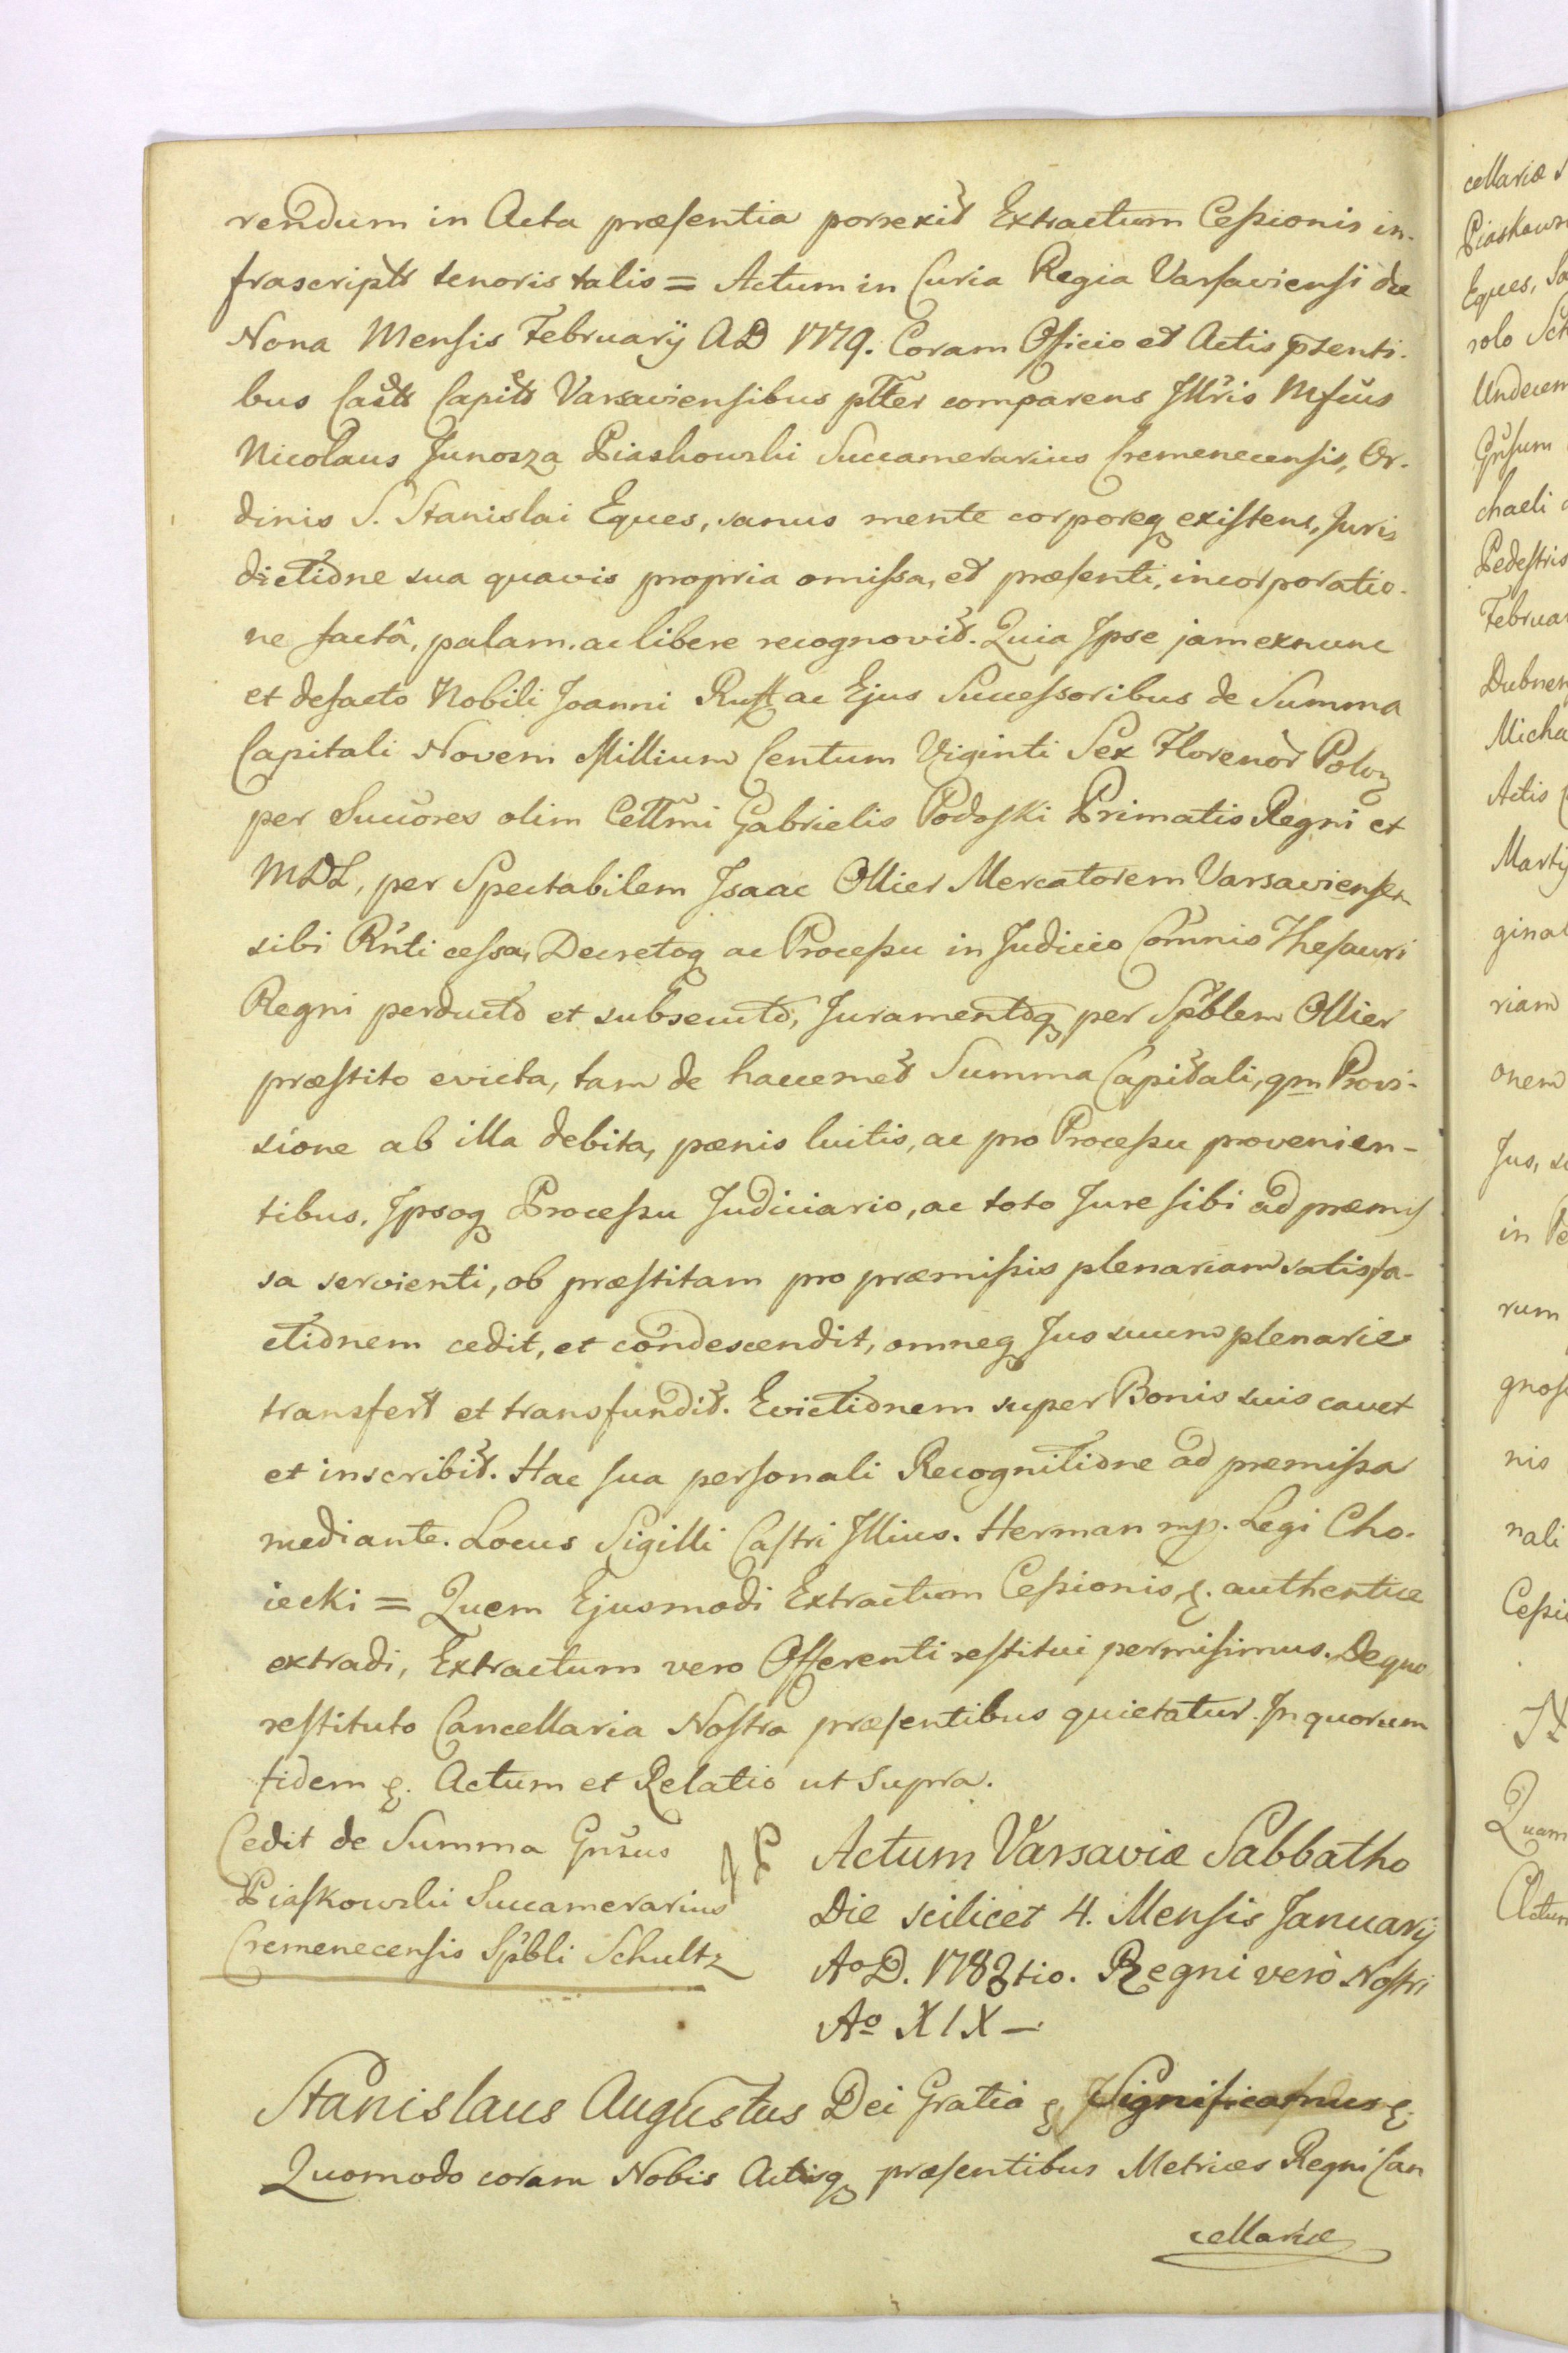 rendum in Acta præsentia porrexit Extractum Cessionis in-
frascripti tenoris talis = Actum in Curia Regia Varsaviensi die
Nona Mensis Februarij AD 1779. Coram Officio et Actis pſenti-
bus Castr Capits Varsaviensibus pltter comparens Illris Mfcus
Nicolaus Junosza Piaskowski Succamerarius Cremenecensis, Or-
dinis S. Stanislai Eques, sanus mente corporeq existens, Juris
dictione sua quavis propria omissa, et præsenti, incorporatio-
ne factâ, palam, ac libere recognovit. Quia Ipse jam exnunc
et defacto Nobili Joanni Rust ac Ejus Successoribus de Summa
Capitali Novem Millium Centum Viginti Sex Florenor Polon
per Succores olim Cellmi Gabrielis Podoski Primatis Regni et
MDL, per Spectabilem Isaac Ollier Mercatorem Varsaviensem
sibi Rnti cessa, Decretoq ac Processu in Judicio Comnis Thesauri
Regni perducto et subsecuto, Juramentoq per Spblem Ollier
præstito evicta, tam de haccemet Summa Capitali, qm Provi-
sione ab illa debita, pœnis luitis, ac pro Processu provenien-
tibus, Ipsoq Processu Judiciario, ac toto Jure sibi ad præmis
sa servienti, ob præstitam pro præmissis plenariam satisfa-
ctionem cedit, et condescendit, omneq Jus suum plenarie
transfert et transfundit. Evictionem super Bonis suis cavet
et inscribit. Hac sua personali Recognitione ad præmissa
mediante. Locus Sigilli Castri Illius. Herman mp. Legi Cho-
iecki = Quem Ejusmodi Extractum Cessionis, &. authentice
extradi, Extractum vero Offerenti restitui permisimus. De quo
restituto Cancellaria Nostra præsentibus quietatur. In quorum
fidem &. Actum et Relatio ut supra.
Cedit de Summa Gnsus
Piaskowski Succamerarius
Cremenecensis Spbli Schultz
Actum Varsaviæ Sabbatho
Die scilicet 4. Mensis Januarij
Ao D. 1783tio. Regni verò Nostri
Ao XIX —
Stanislaus Augustus Dei Gratia & Significamus &.
Quomodo coram Nobis Actisq præsentibus Metrices Regni Can
cellariæ
cellariæ
Eques,
Undecem
Gnsum
chaeli
Pedestris
Februar
Dubnen
Micha
Actis
Martij
ginal
riam
onem
Jus,
in
rum
gnos
nis
nali
Cessi
Quam
Actum